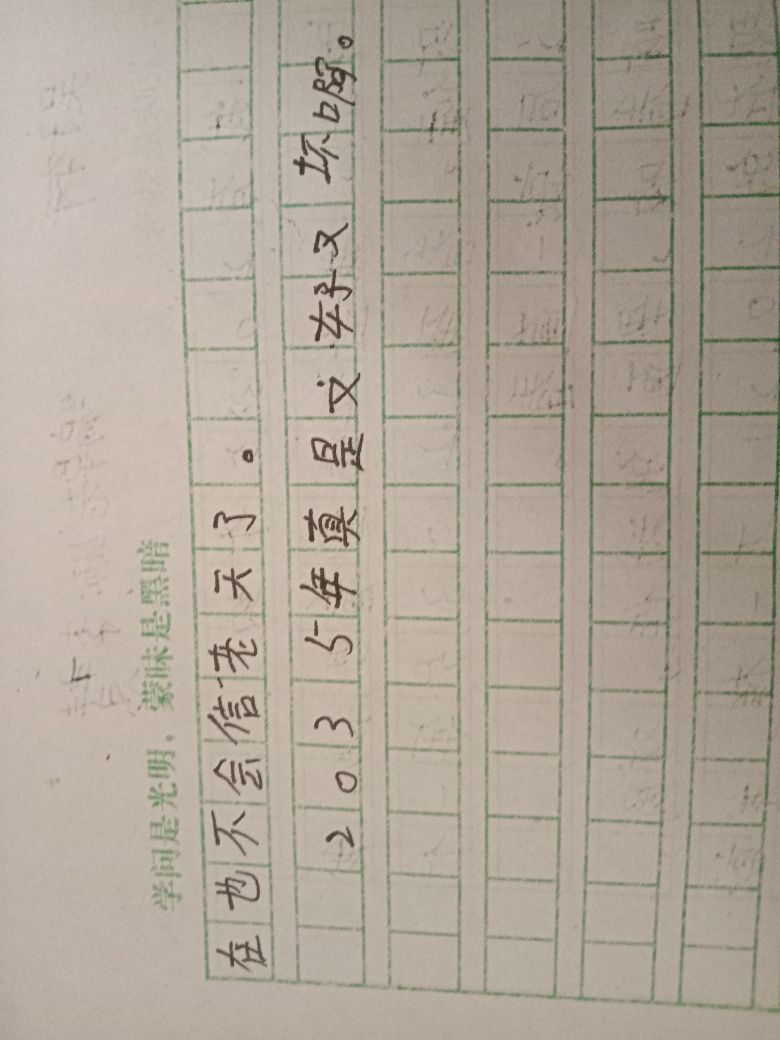 学问是光明，蒙昧是黑暗
在也不会信老天了。
2035年真是又好又坏啊。